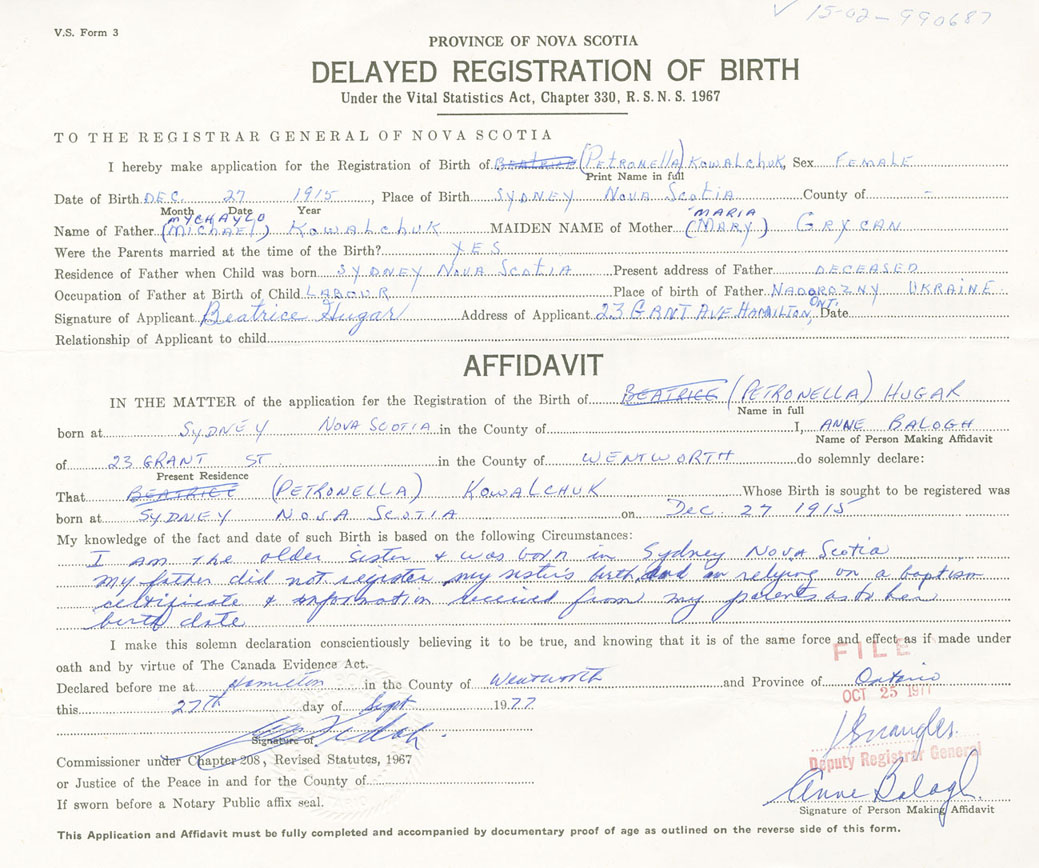 V 15-02-990687
V.S. Form 3
PROVINCE OF NOVA SCOTIA
DELAYED REGISTRATION OF BIRTH
Under the Vital Statistics Act, Chapter 330, R. S. N. S. 1967
TO THE REGISTRAR GENERAL OF NOVA SCOTIA
I hereby make application for the Registration of Birth of BEATRICE (PETRONELLA) KOWALCHUK, Sex FEMALE
Print Name in full
Date of Birth DEC. 27 1915, Place of Birth SYDNEY NOVA SCOTIA County of -
Month Date Year
MYCHAYLO MARIA
Name of Father (MICHAEL) KOWALCHUK MAIDEN NAME of Mother (MARY) GRYCAN
Were the Parents married at the time of the Birth? YES
Residence of Father when Child was born SYDNEY NOVA SCOTIA Present address of Father DECEASED
Occupation of Father at Birth of Child LABOUR Place of birth of Father NADOROZNY UKRAINE
Signature of Applicant Beatrice Hugar Address of Applicant 23 GRANT AVE HAMILTON, ONT. Date
Relationship of Applicant to child
AFFIDAVIT
IN THE MATTER of the application for the Registration of the Birth of BEATRICE (PETRONELLA) HUGAR
Name in full
born at SYDNEY NOVA SCOTIA in the County of I, ANNE BALOGH
Name of Person Making Affidavit
of 23 GRANT ST in the County of WENTWORTH do solemnly declare:
Present Residence
That BEATRICE (PETRONELLA) KOWALCHUK Whose Birth is sought to be registered was
born at SYDNEY NOSA SCOTIA on Dec. 27 1915
My knowledge of the fact and date of such Birth is based on the following Circumstances:
I am the older sister & was born in Sydney Nova Scotia
my father did not register my sister's birth and am relying on a baptism
certificate & information received from my parents as to her
birth date
I make this solemn declaration conscientiously believing it to be true, and knowing that it is of the same force and effect as if made under
oath and by virtue of The Canada Evidence Act.
FILE
Declared before me at Hamilton in the County of Wentworth and Province of Ontario
OCT 25 1977
this 27th day of Sept 1977
Signature of
Commissioner under Chapter 208, Revised Statutes, 1967
Deputy Registrar General
or Justice of the Peace in and for the County of
If sworn before a Notary Public affix seal.
Anne Balogh
Signature of Person Making Affidavit
This Application and Affidavit must be fully completed and accompanied by documentary proof of age as outlined on the reverse side of this form.